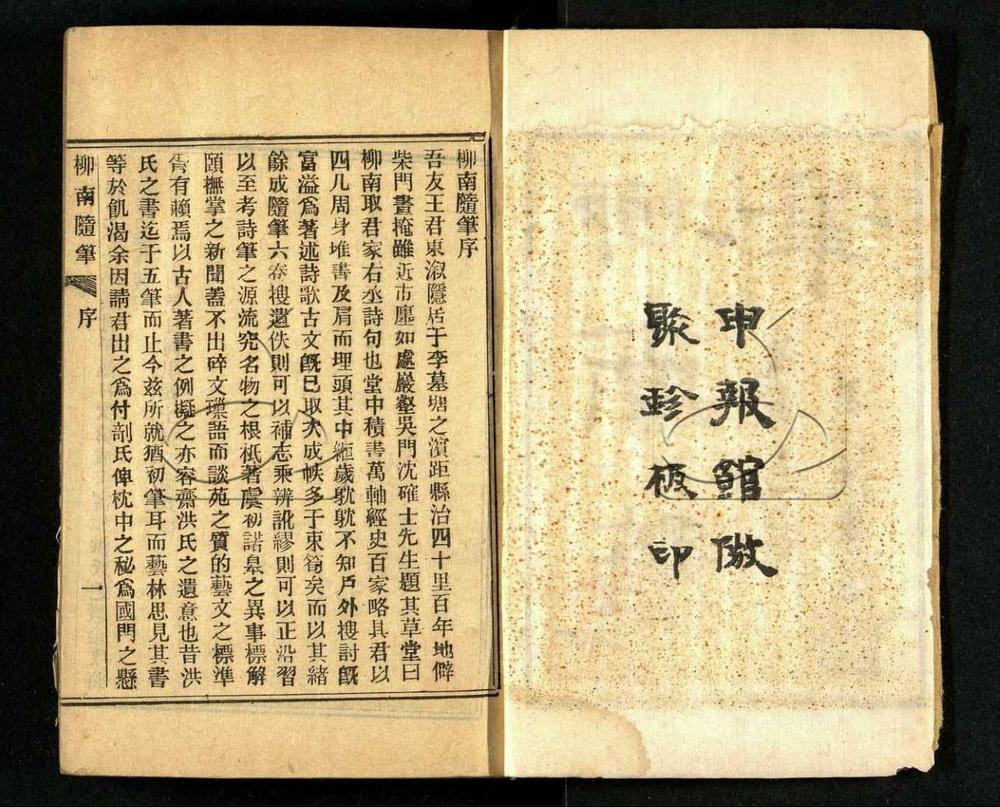 申報館倣
聚珍板印
柳南隨筆序
吾友王君東漵隱居于李墓塘之濵距縣治四十里百年地僻
柴門晝掩雖近市廛如處巖壑吳門沈確士先生題其草堂曰
柳南取君家右丞詩句也堂中積書萬軸經史百家略具君以
四几周身堆書及肩而埋頭其中縂歲躭躭不知戶外搜討旣
富溢爲著述詩歌古文旣已取次成帙多于束筍矣而以其緒
餘成隨筆六卷搜遺佚則可以補志乘辨訛繆則可以正沿習
以至考詩筆之源流究名物之根柢著虞初諾臯之異事標解
頤撫掌之新聞蓋不出碎文璅語而談苑之質的藝文之標準
胥有賴焉以古人著書之例擬之亦容齋洪氏之遺意也昔洪
氏之書迄于五筆而止今茲所就猶初筆耳而藝林思見其書
等於飢渴余因請君出之爲付剞氏俾枕中之秘爲國門之懸
柳南隨筆 序 一